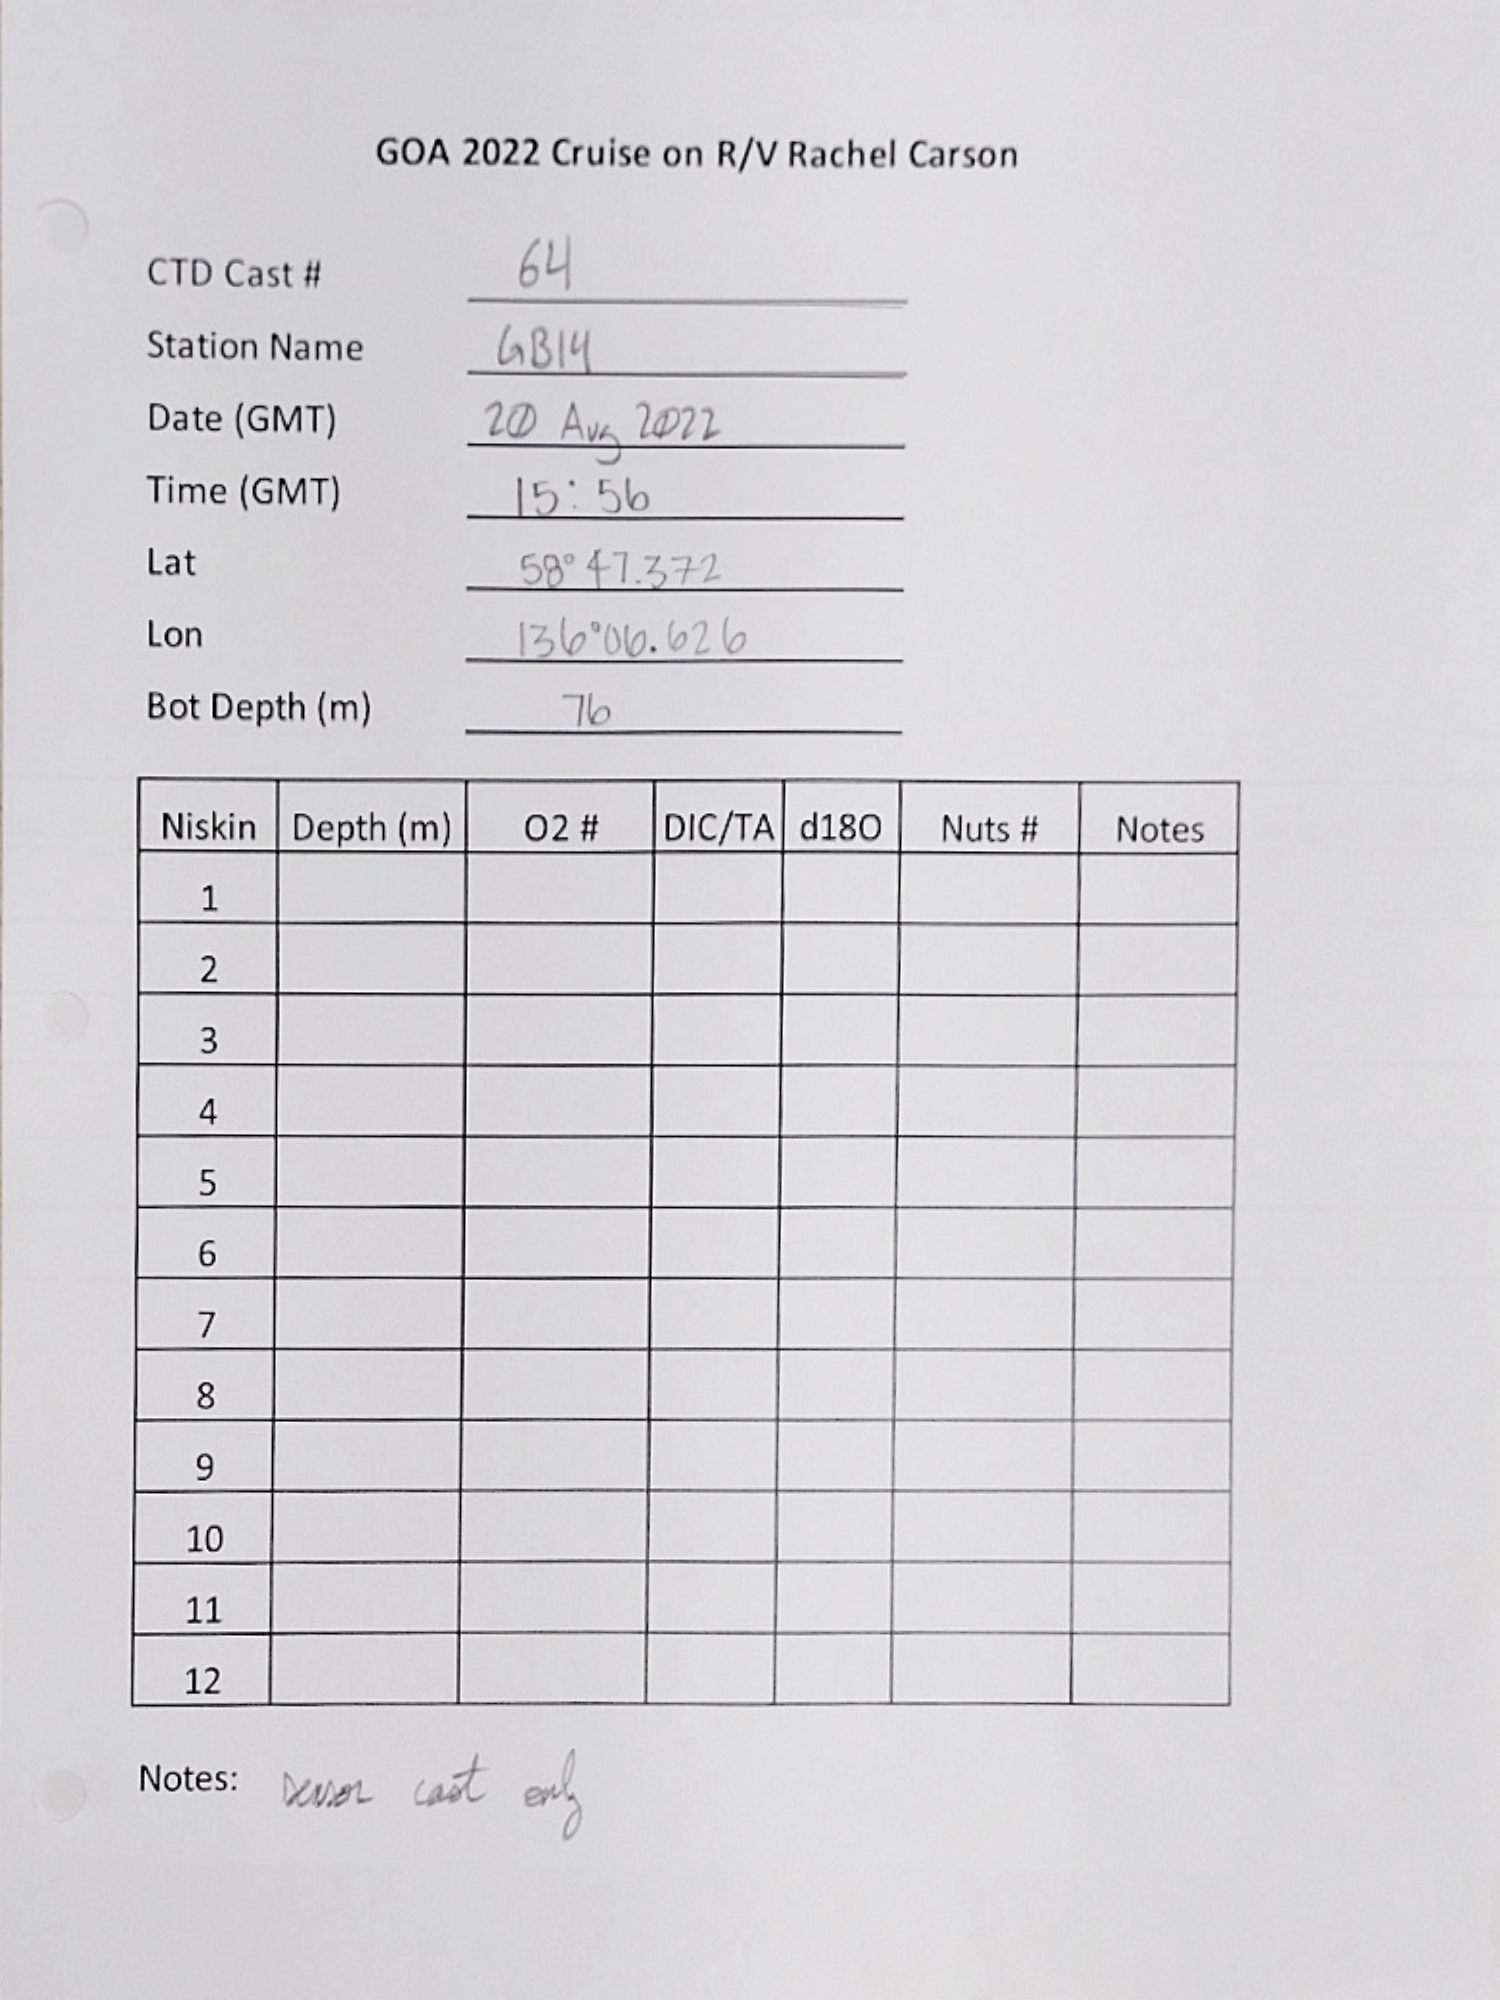 GOA 2022 Cruise on R/V Rachel Carson
CTD Cast # 64
Station Name GB14
Date (GMT) 20 Aug 2022
Time (GMT) 15:56
Lat 58°47.372
Lon 136°06.626
Bot Depth (m) 76
Niskin Depth (m) O2 # DIC/TA d18O Nuts # Notes
1
2
3
4
5
6
7
8
9
10
11
12
Notes: sensor cast only